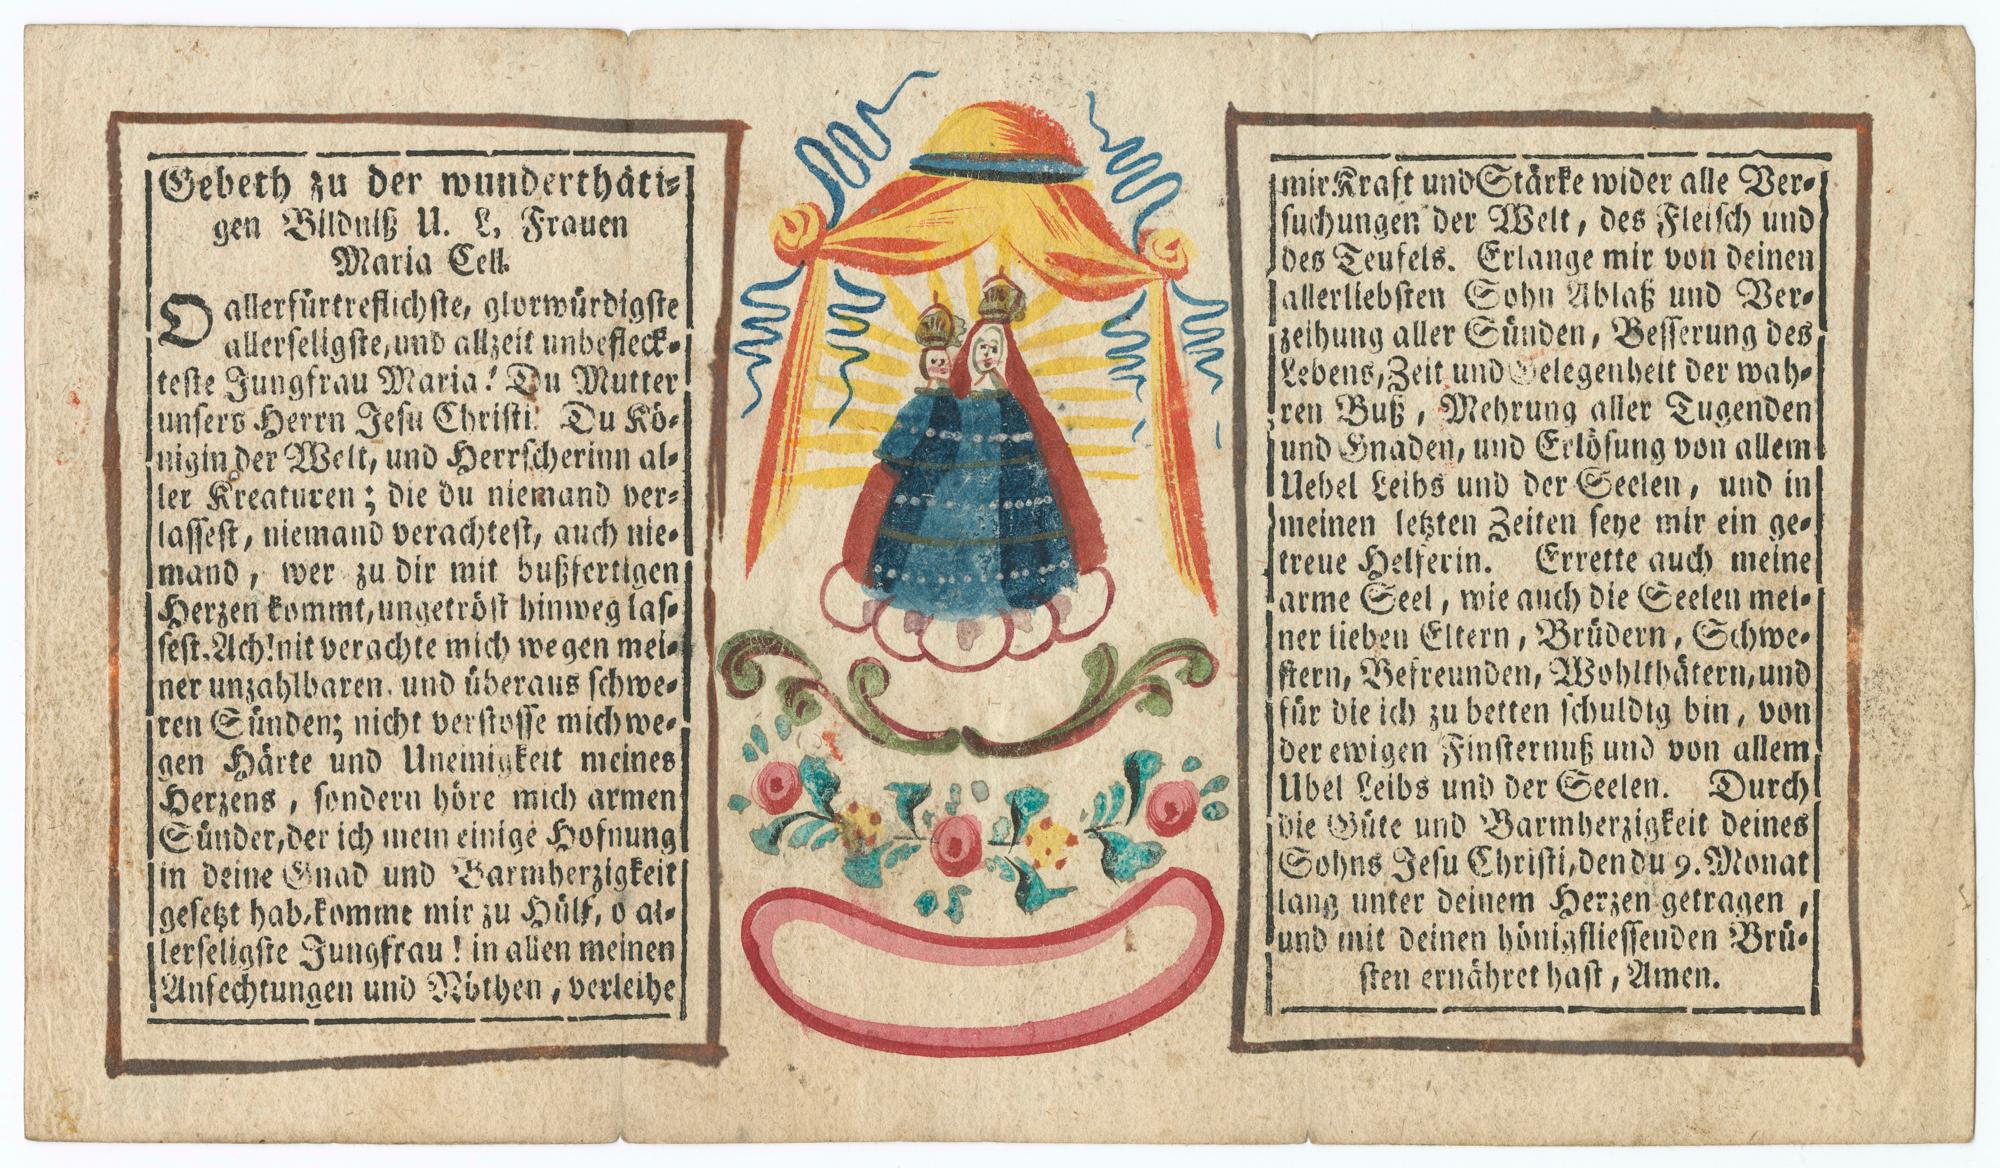 Gebeth zu der wunderthäti-
gen Bildniß U. L. Frauen
Maria Cell.
O allerfürtreflichste, glorwürdigste
allerseligste, und allzeit unbefleck-
teste Jungfrau Maria! Du Mutter
unsers Herrn Jesu Christi! Du Kö-
nigin der Welt, und Herrscherinn al-
ler Kreaturen; die du niemand ver-
lassest, niemand verachtest, auch nie-
mand, wer zu dir mit bußfertigen
Herzen kommt, ungetröst hinweg las-
sest. Ach! nit verachte mich wegen mei-
ner unzahlbaren, und überaus schwe-
ren Sünden; nicht verstosse mich we-
gen Härte und Uneinigkeit meines
Herzens, sondern höre mich armen
Sünder, der ich mein einige Hofnung
in deine Gnad und Barmherzigkeit
gesetzt hab, komme mir zu Hülf, o al-
lerseligste Jungfrau! in allen meinen
Anfechtungen und Nöthen, verleihe
mir Kraft und Stärke wider alle Ver-
suchungen der Welt, des Fleisch und
des Teufels. Erlange mir von deinen
allerliebsten Sohn Ablaß und Ver-
zeihung aller Sünden, Besserung des
Lebens, Zeit und Gelegenheit der wah-
ren Buß, Mehrung aller Tugenden
und Gnaden, und Erlösung von allem
Uebel Leibs und der Seelen, und in
meinen letzten Zeiten seye mir ein ge-
treue Helferin. Errette auch meine
arme Seel, wie auch die Seelen mei-
ner lieben Eltern, Brüdern, Schwe-
stern, Befreunden, Wohlthätern, und
für die ich zu betten schuldig bin, von
der ewigen Finsternuß und von allem
Ubel Leibs und der Seelen. Durch
die Güte und Barmherzigkeit deines
Sohns Jesu Christi, den du 9. Monat
lang unter deinem Herzen getragen,
und mit deinen hönigfliessenden Brü-
sten ernähret hast, Amen.